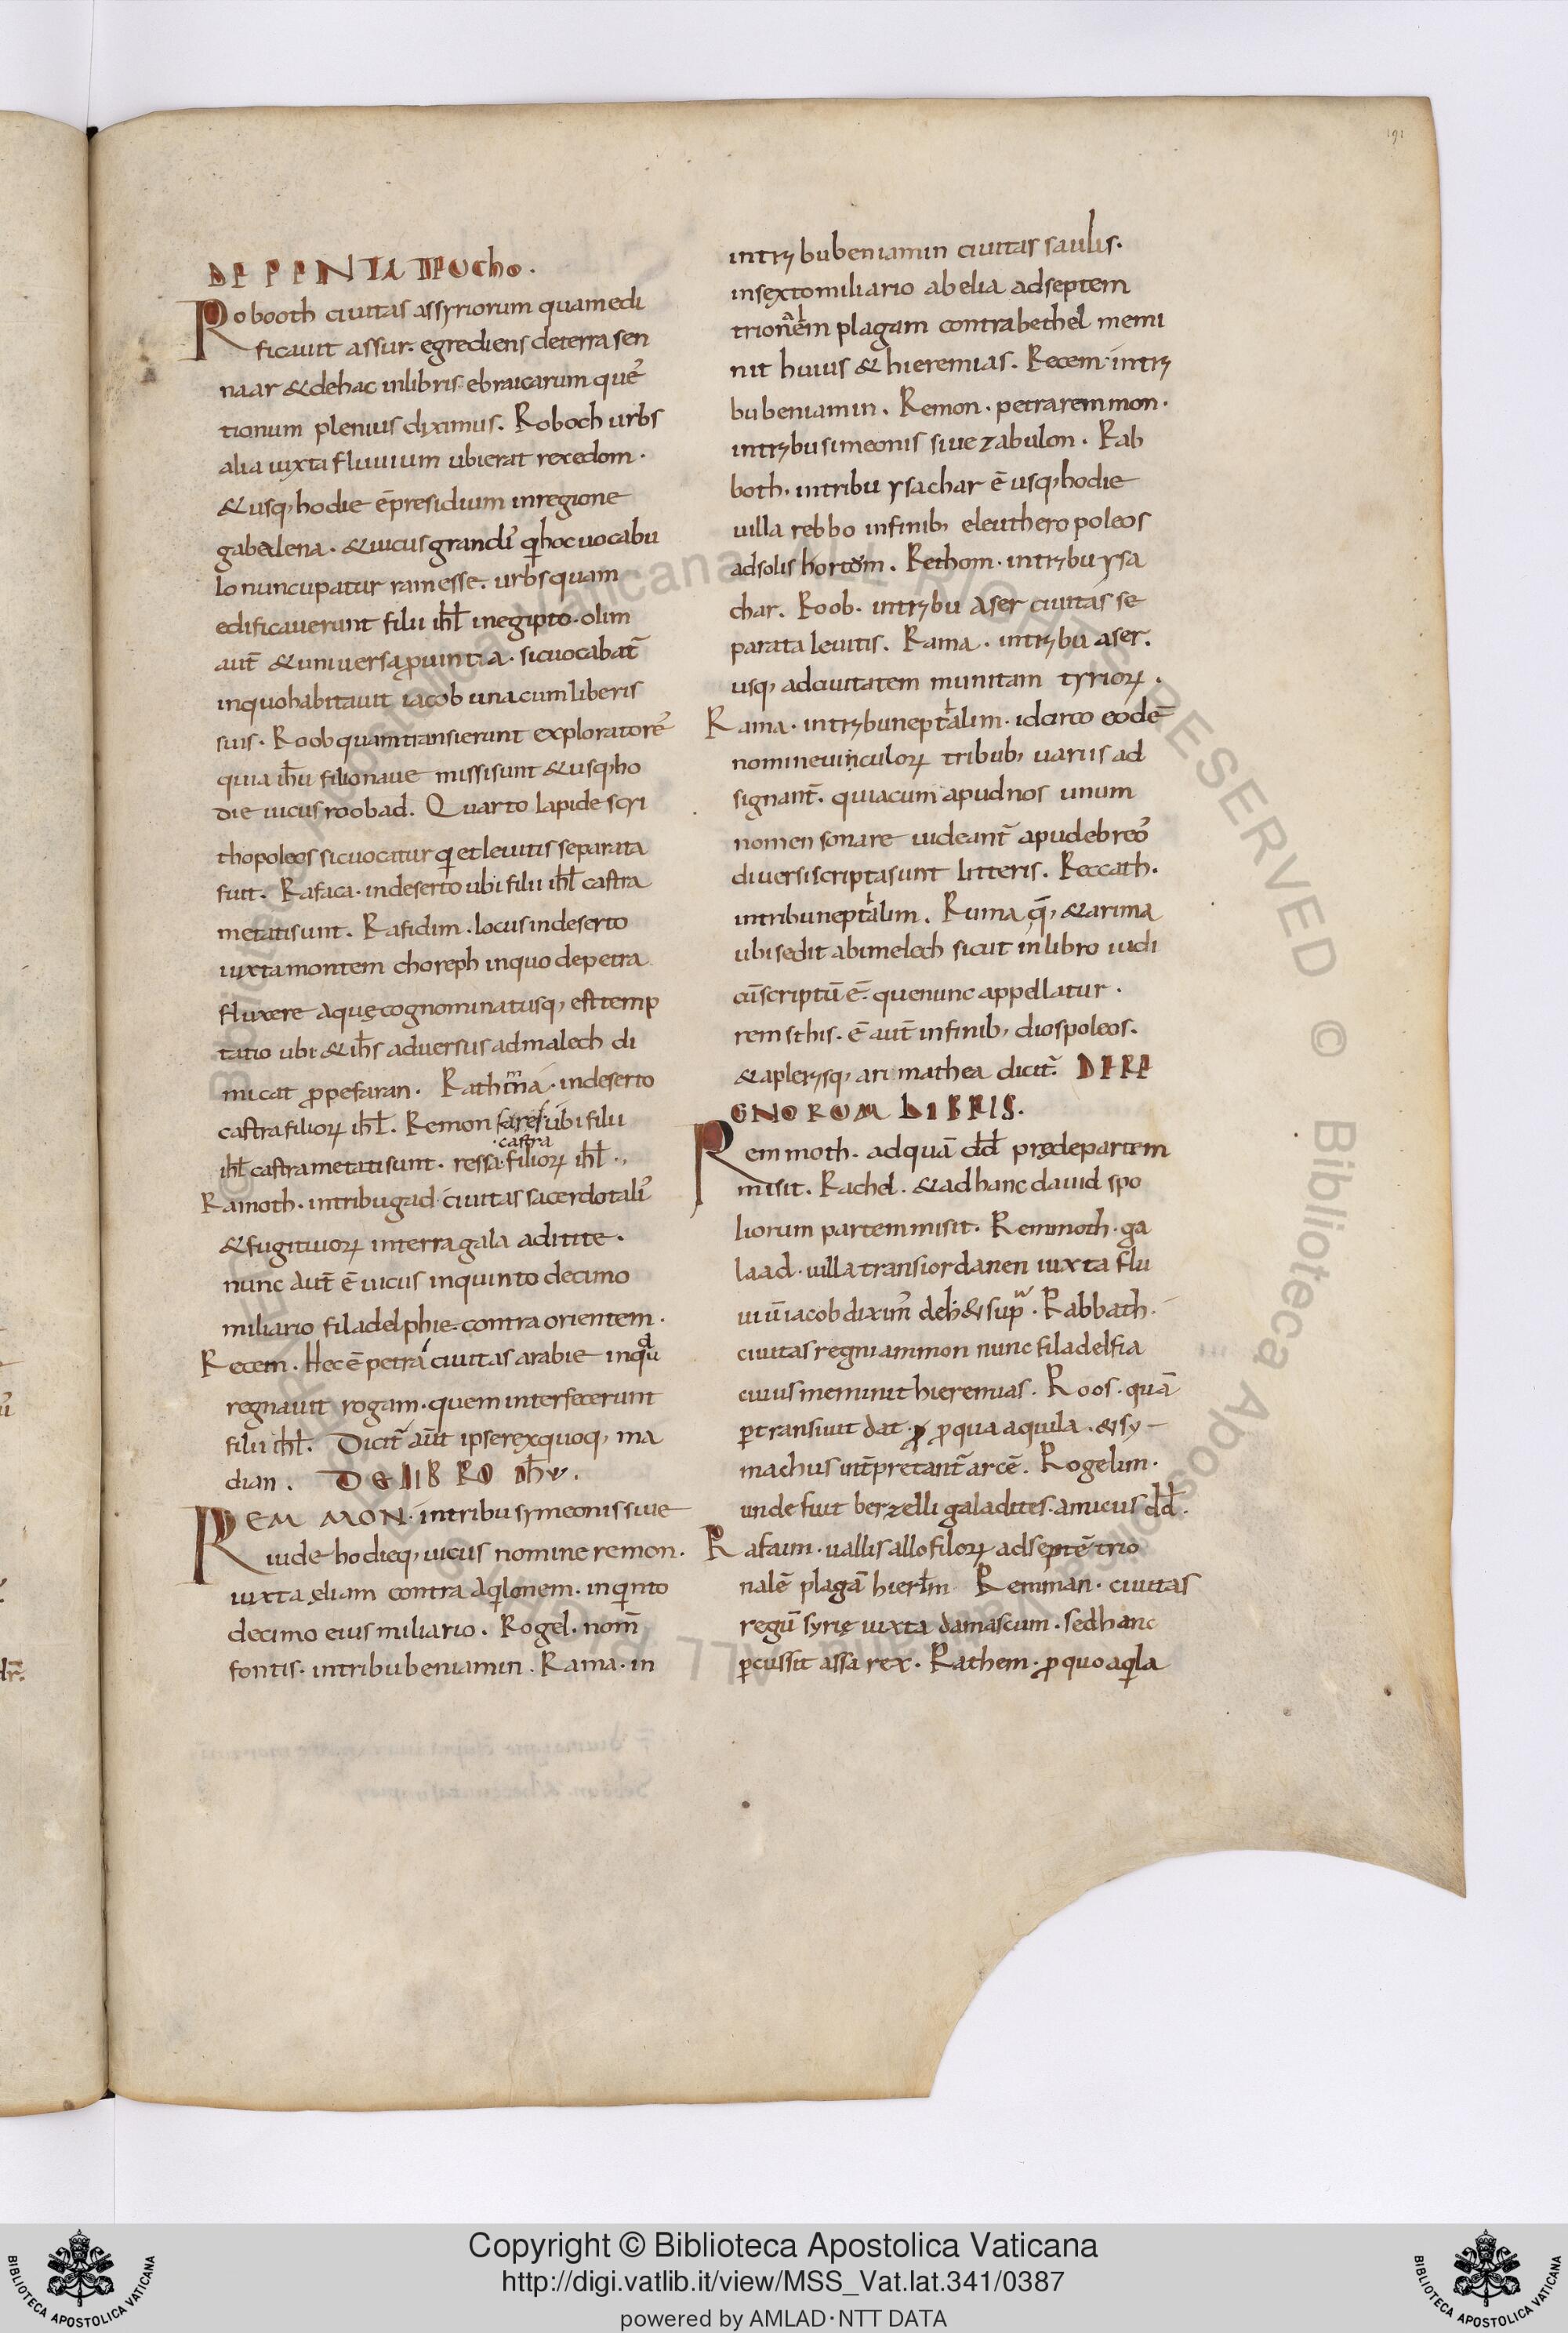 191
DE PENTA TEUcho.
Robooth ciuitas assyriorum quam edi
ficauit assur. egrediens de terra sen
naar & de hac in libris ebraicarum ques̉
tionum plenius diximus. Roboch urbs
alia iuxta fluuium ubi erat rex edom.
& usq; hodie ē presidium in regione
gabalena. & uicus grandis̉ q̇ hoc uocabu
lo nuncupatur ramesse. urbs quam
edificauerunt filii ihl̄ in egipto. olim
aut̄ & uniuersa ꝓuintia. sic uocabat̄
in quo habitauit iacob una cum liberis
suis. Roob quam transierunt exploratores̉
quia ih̄u filio naue missi sunt & usq; ho
die uicus roobad. Quarto lapide scri
thopoleos sic uocatur q̇ et leuitis separata
fuit. Rafaca. in deserto ubi filii ihl̄ castra
metati sunt. Rafidim. locus in deserto
iuxta montem choreph in quo de petra
fluxere aquę cognominatusq; est temp
tatio ubi & ih̄s aduersus admalech di
micat ꝓpe faran. Rathma. in deserto
castra filioꝝ ihl̄. Remon fares ubi filii
castra
ihl̄ castra metati sunt. ressa. filioꝝ ihl̄.,
Ramoth. in tribu gad. ciuitas sacerdotalis̉
& fugitiuoꝝ in terra gala aditite.
nunc aut̄ ē uicus in quinto decimo
miliario filadelphie. contra orientem.
Recem. Hec ē petra ciuitas arabie in qu
regnauit rogam. quem interfecerunt
filii ihl̄. Dicit̄ aūt ipse rex quoq; ma
dian. DE LIBRO ih̄u.
REMMON. in tribu symeonis siue
iude hodieq; uicus nomine remon.
iuxta ęliam contra aq̇lonem. in q̇nto
decimo eius miliario. Rogel. nom̄
fontis. in tribu beniamin. Rama. in
in trybu beniamin ciuitas saulis.
in sexto miliario ab elia ad septem
trionalem plagam contra bethel memi
nit huius & hieremias. Recem. in try
bu beniamin. Remon. petra remmon.
in trybu simeonis siue zabulon. Rab
both. in tribu ysachar ē usq; hodie
uilla rebbo in finib; eleuthero poleos
ad solis hortom. Rethom. in trybu ysa
char. Roob. in trybu aser ciuitas se
parata leuitis. Rama. in trybu aser.
usq; ad ciuitatem munitam tyrioꝝ.
Rama. in trybu neptalim. idcirco eodē
nomine uinculoꝝ tribub; uariis ad
signant̄. quia cum apud nos unum
nomen sonare uideant̄ apud ebreos̉
diuersi scripta sunt litteris. Reccath.
in tribu neptalim. Ruma q̄; & arima
ubi sedit abimelech sicut in libro iudi
cū scriptū ē. que nunc appellatur.
remsthis. ē aut̄ in finib; diospoleos.
& a plerysq; arimathea dicit̄. DE RE
GNORUM LIBRIS.
Remmoth. ad quā dd̄ prędę partem
misit. Rachel. & ad hanc dauid spo
liorum partem misit. Remmoth. ga
laad. uilla trans iordanen iuxta flu
uiū iacob diximus̉ de h̄ & sup̄. Rabbath.
ciuitas regni ammon nunc filadelfia
cuius meminit hieremias. Roos. quā
ꝑtransiuit dat. ꝓ qua aquila. & sy
machus int̄pretant̄ arcē. Rogelim.
unde fuit berzelli galadites. amicus dd̄.
Rafaim. uallis allofiloꝝ ad septē trio
nalē plagā hierl̄m Remman. ciuitas
regū syrię iuxta damascum. sed hanc
ꝑcussit assa rex. Rathem. ꝓ quo aq̇la
Copyright © Biblioteca Apostolica Vaticana
http://digi.vatlib.it/view/MSS_Vat.lat.341/0387
powered by AMLAD·NTT DATA
BIBLIOTECA APOSTOLICA VATICANA
BIBLIOTECA APOSTOLICA VATICANA